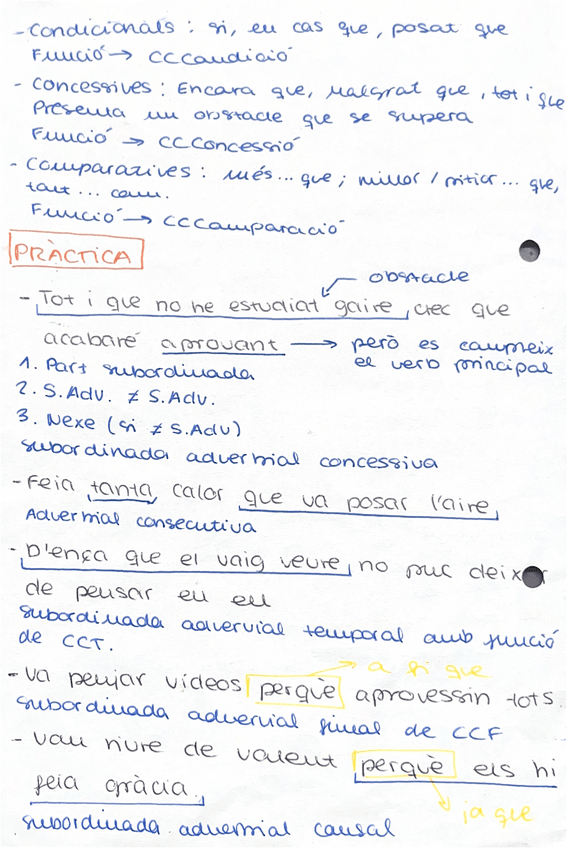 - Condicionals : si, en cas que, posat que
Funció → CCCondició
- Concessives : Encara que, malgrat que, tot i que
Presenta un obstacle que se supera
Funció → CCConcessió
- Comparatives : més... que; millor / pitjor ... que,
tant ... com.
Funció → CCComparació
PRÀCTICA
obstacle
- Tot i que no he estudiat gaire, crec que
acabaré aprovant → però es compleix
el verb principal
1. Part subordinada
2. S.Adv. ≠ S.Adv.
3. Nexe (si ≠ S.Adv)
subordinada adverbial concessiva
- Feia tanta calor que va posar l'aire
Adverbial consecutiva
- D'ença que el vaig veure, no puc deixar
de pensar en ell
subordinada adverbial temporal amb funció
de CCT.
→ a fi que
- Va penjar vídeos perquè aprovessin tots.
subordinada adverbial final de CCF
- Van riure de valent perquè els hi
feia gràcia.
ja que
subordinada adverbial causal